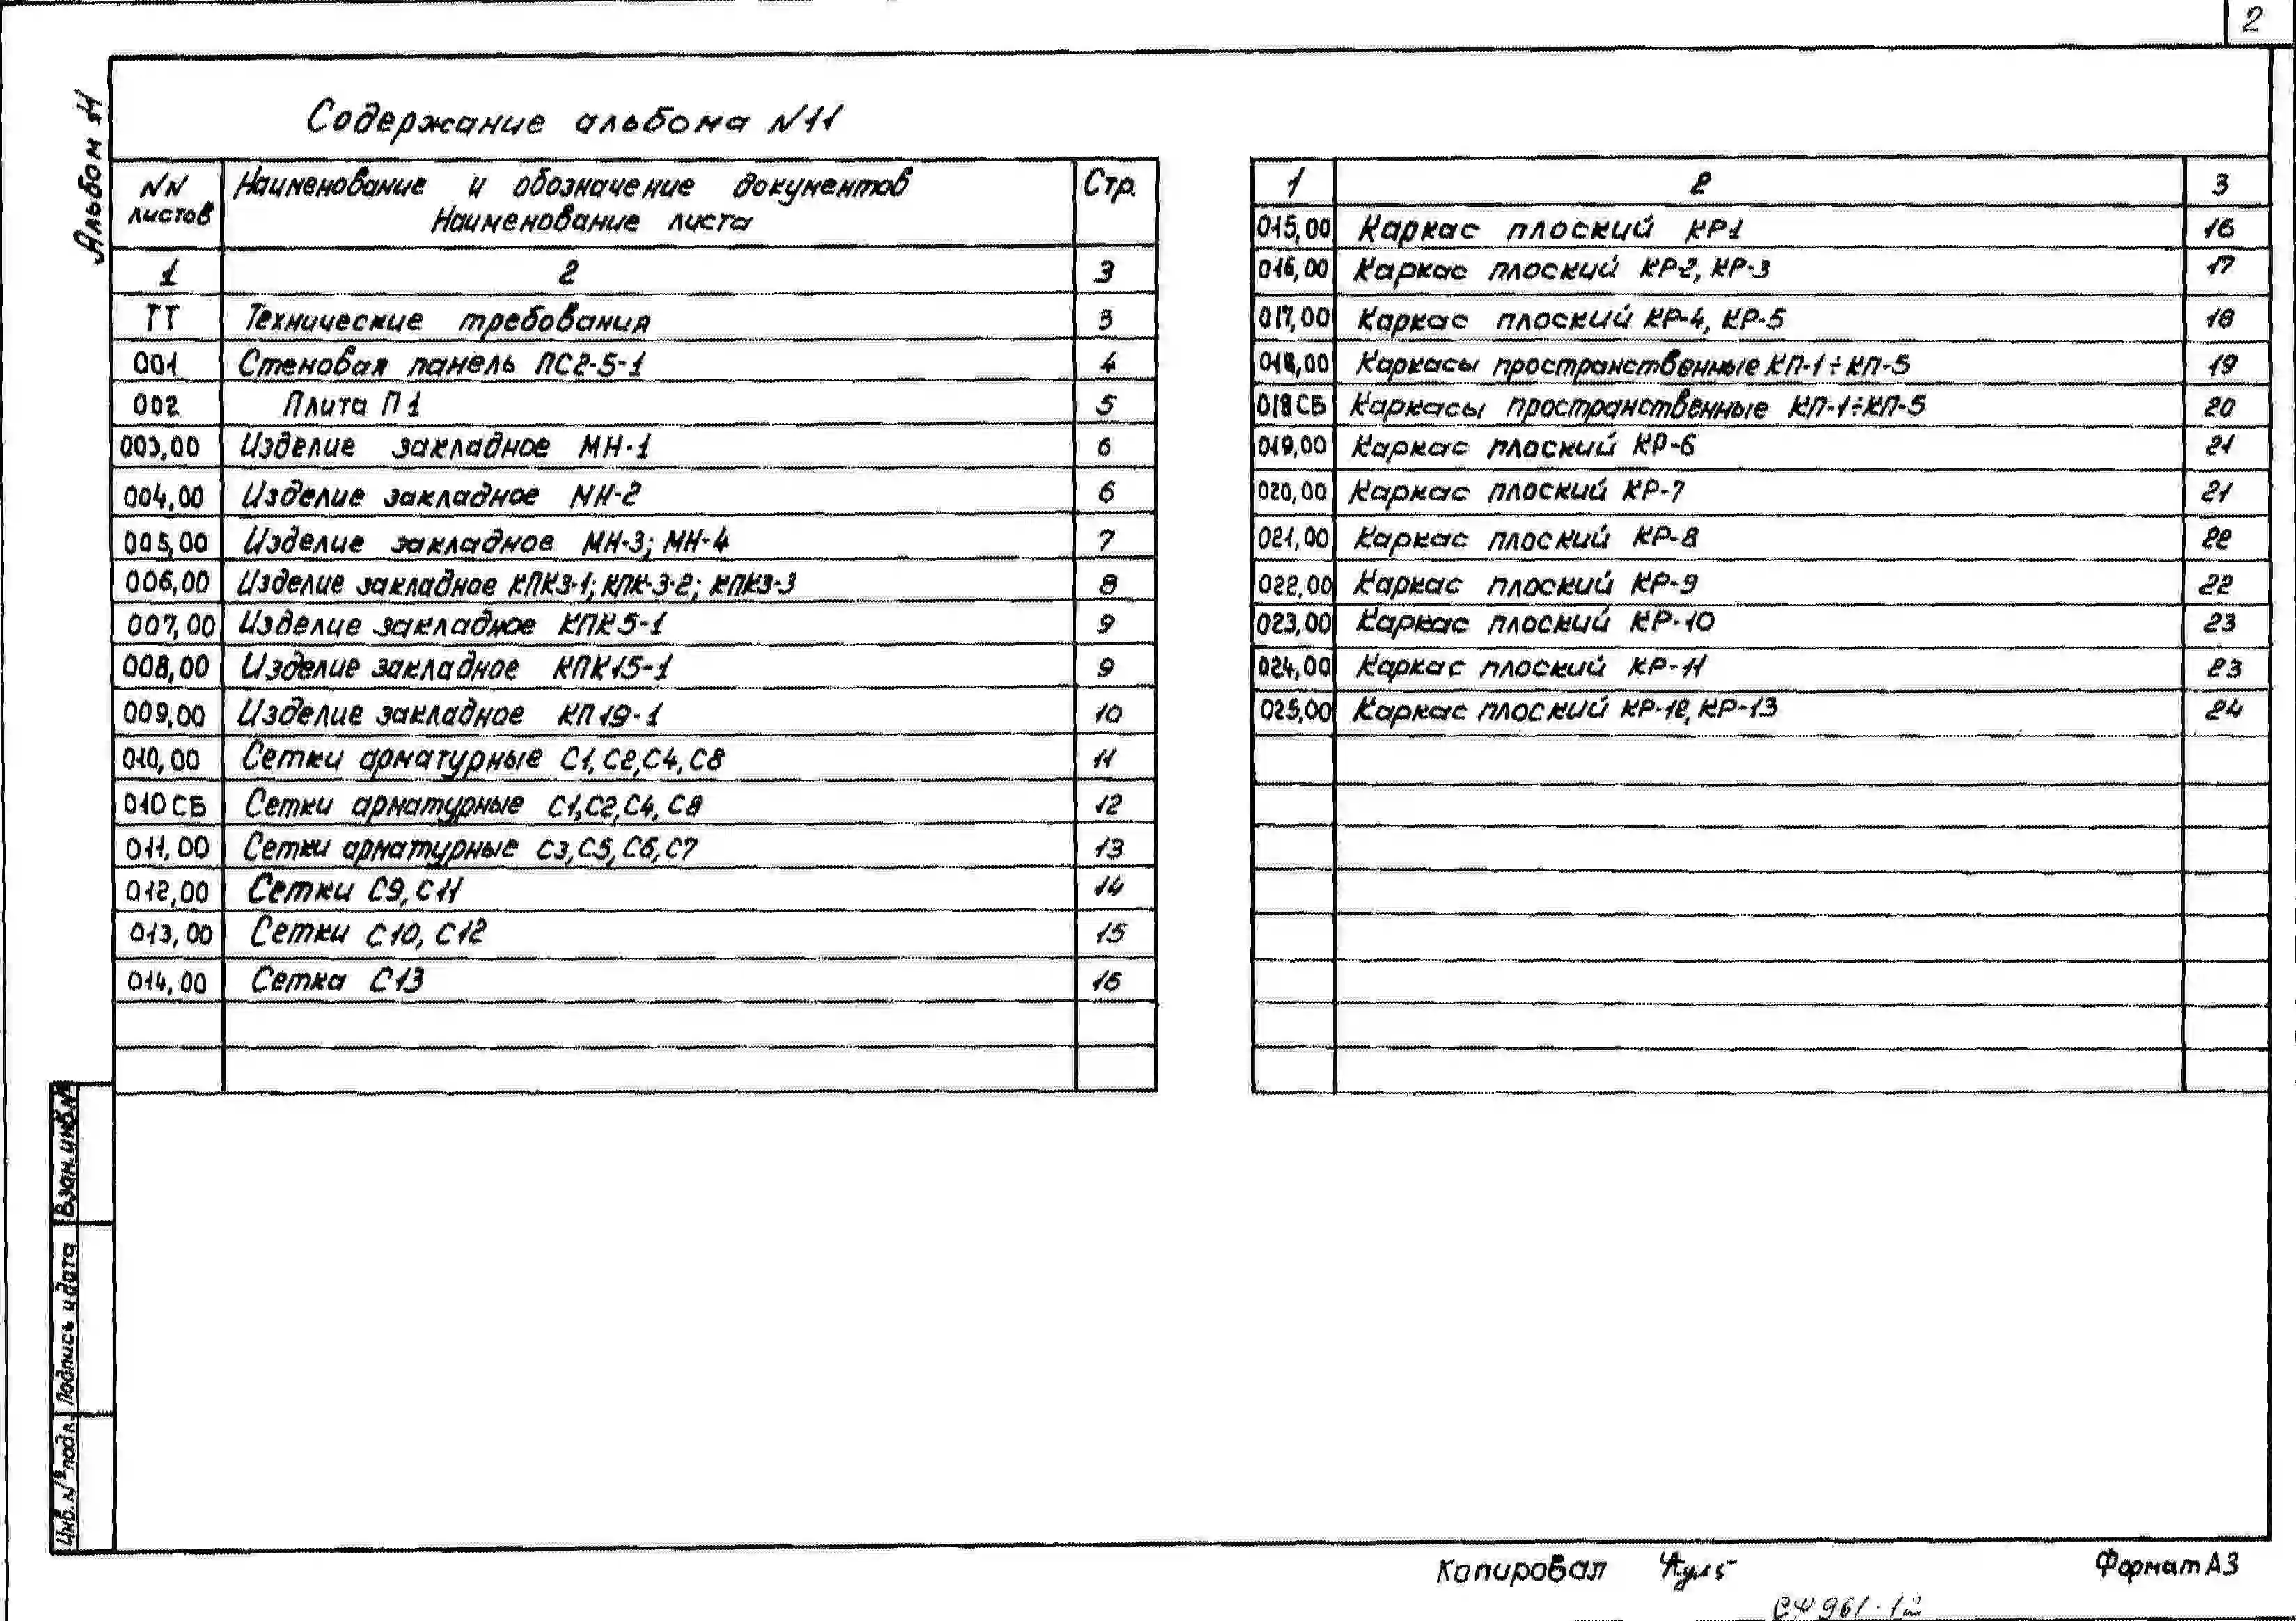 2
Альбом 11
Содержание альбома N11
NN листов Наименование и обозначение документов Наименование листа Стр.
1 2 3
ТТ Технические требования 3
001 Стеновая панель ПС2-5-1 4
002 Плита П1 5
003,00 Изделие закладное МН-1 6
004,00 Изделие закладное МН-2 6
005,00 Изделие закладное МН-3; МН-4 7
006,00 Изделие закладное КПК3-1; КПК-3-2; КПК3-3 8
007,00 Изделие закладное КПК5-1 9
008,00 Изделие закладное КПК15-1 9
009,00 Изделие закладное КП19-1 10
010,00 Сетки арматурные С1, С2, С4, С8 11
010СБ Сетки арматурные С1, С2, С4, С8 12
011,00 Сетки арматурные С3, С5, С6, С7 13
012,00 Сетки С9, С11 14
013,00 Сетки С10, С12 15
014,00 Сетка С13 16
1 2 3
015,00 Каркас плоский КР1 16
016,00 Каркас плоский КР-2, КР-3 17
017,00 Каркас плоский КР-4, КР-5 18
018,00 Каркасы пространственные КП-1÷КП-5 19
018СБ Каркасы пространственные КП-1÷КП-5 20
019,00 Каркас плоский КР-6 21
020,00 Каркас плоский КР-7 21
021,00 Каркас плоский КР-8 22
022,00 Каркас плоский КР-9 22
023,00 Каркас плоский КР-10 23
024,00 Каркас плоский КР-11 23
025,00 Каркас плоский КР-12, КР-13 24
Взам. инв. №
Подпись и дата
Инв. № подл.
Копировал
Формат А3
СФ 961-12